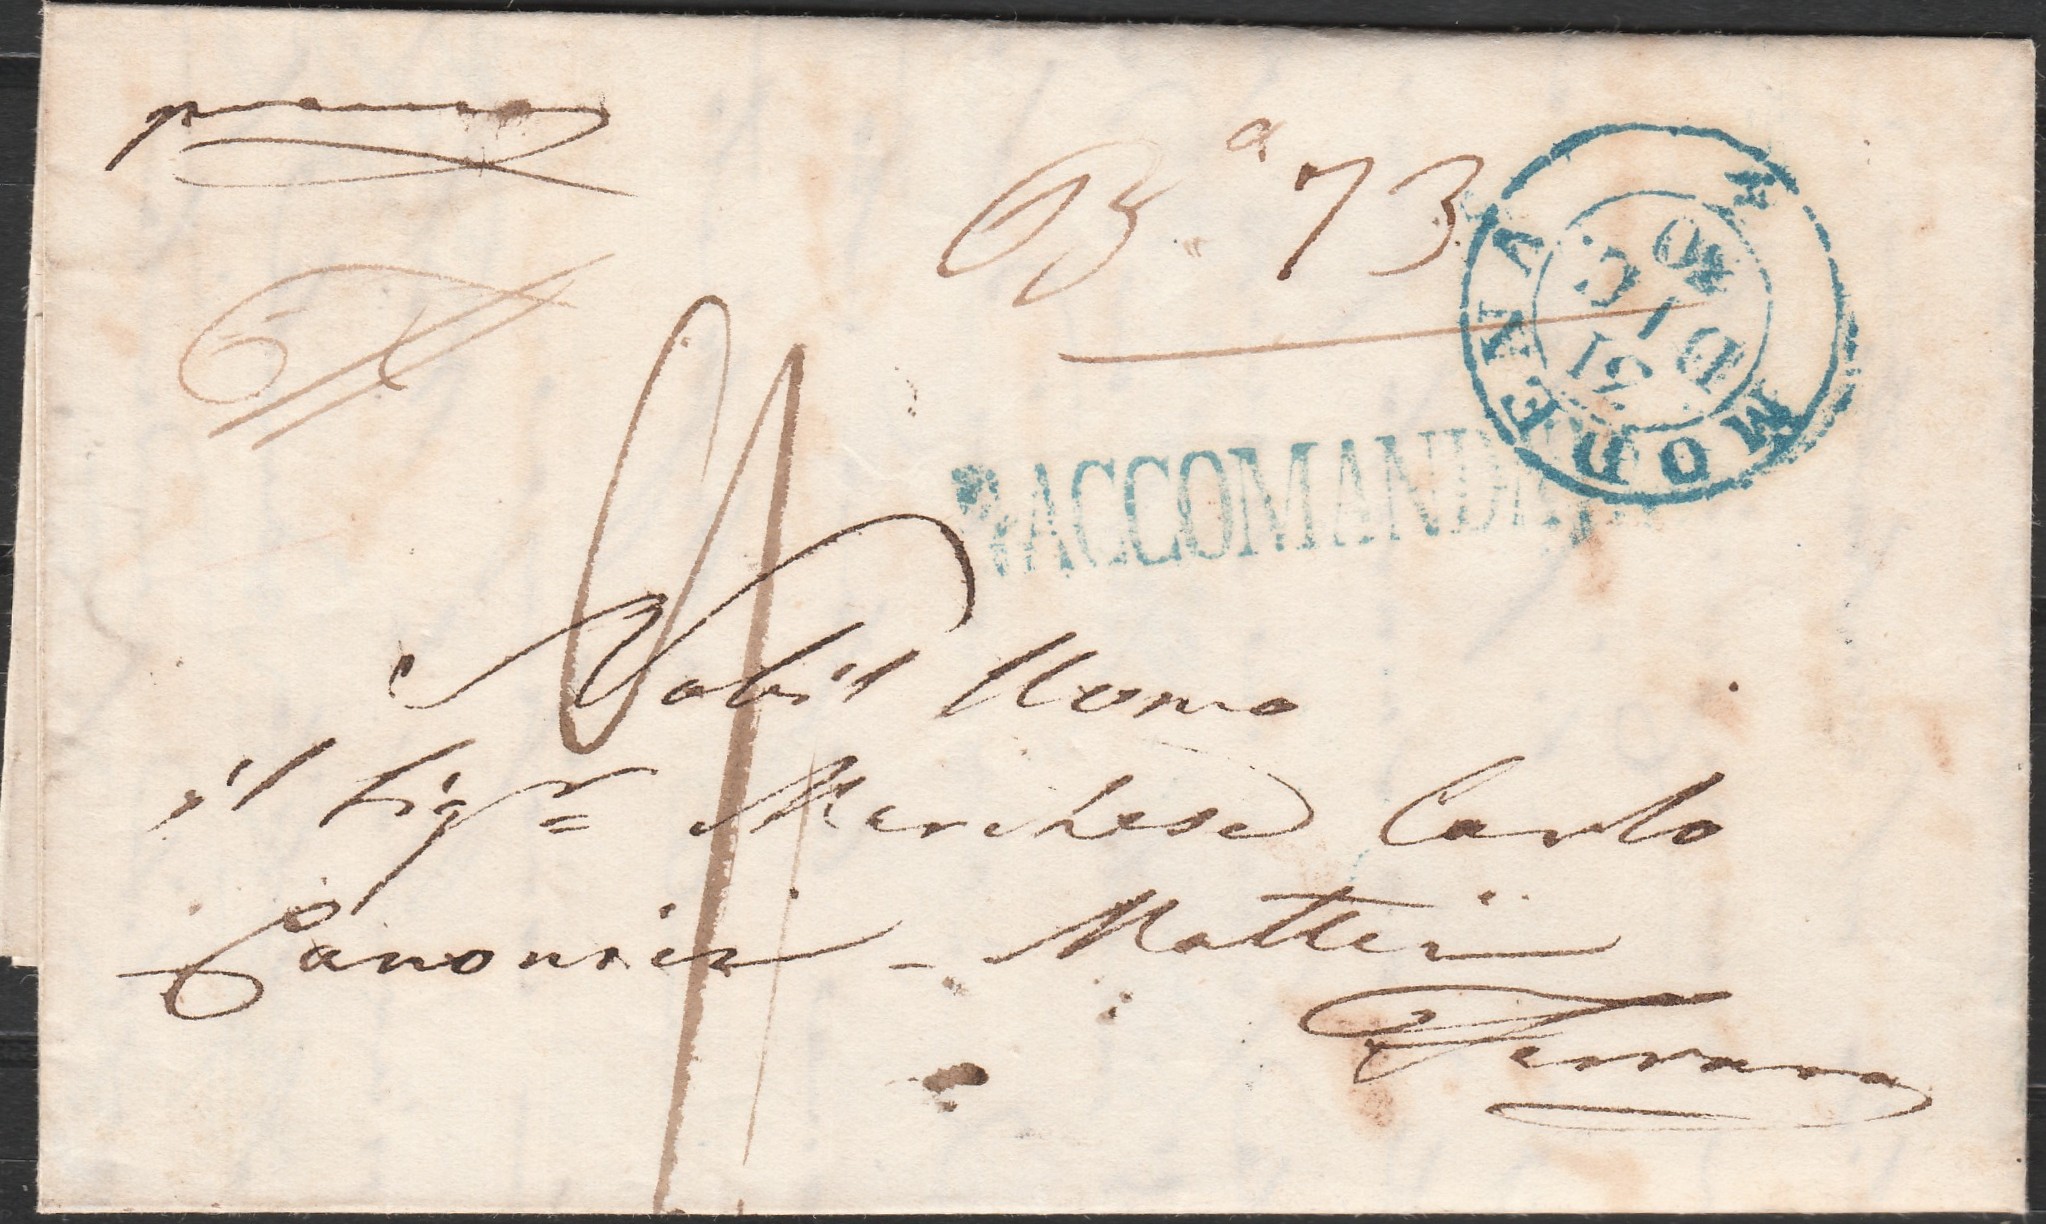 premura
B.ª 73
MODENA
12 DIC. 51
RACCOMANDATA
Nobil Uomo
il Sigr. Marchese Carlo
Canonici - Mattei
Ferrara